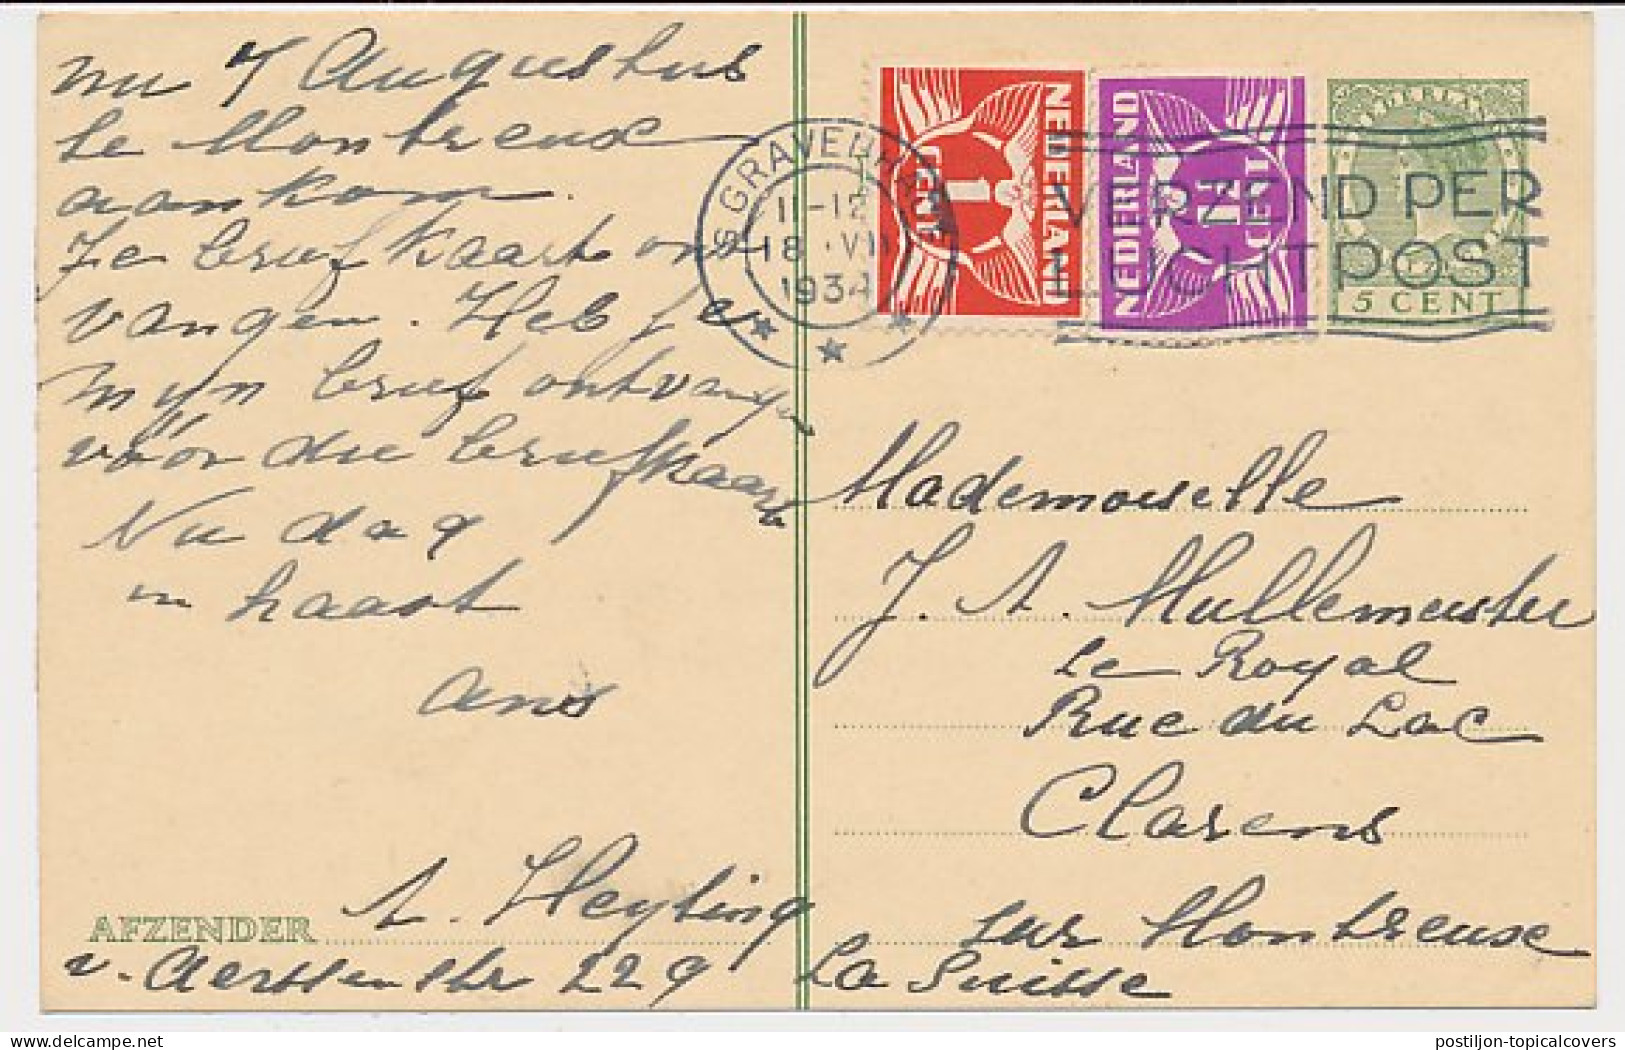 nu 7 Augustus
te Montreux
aankom.
Je briefkaart ont
vangen. Heb je
mijn brief ontvangen
vóór die briefkaart
Nu dag
in haast
Ans
AFZENDER A. Heyting
v. Aerssenstr 229
'S GRAVENHAGE
11-12
18 VII
1934
NEDERLAND
1
CENT
NEDERLAND
CENT
NEDERLAND
5 CENT
VERZEND PER
LUCHTPOST
Mademoiselle
J. A. Mullemeister
Le Royal
Rue du Lac
Clarens
sur Montreux
La Suisse
postiljon-topicalcovers